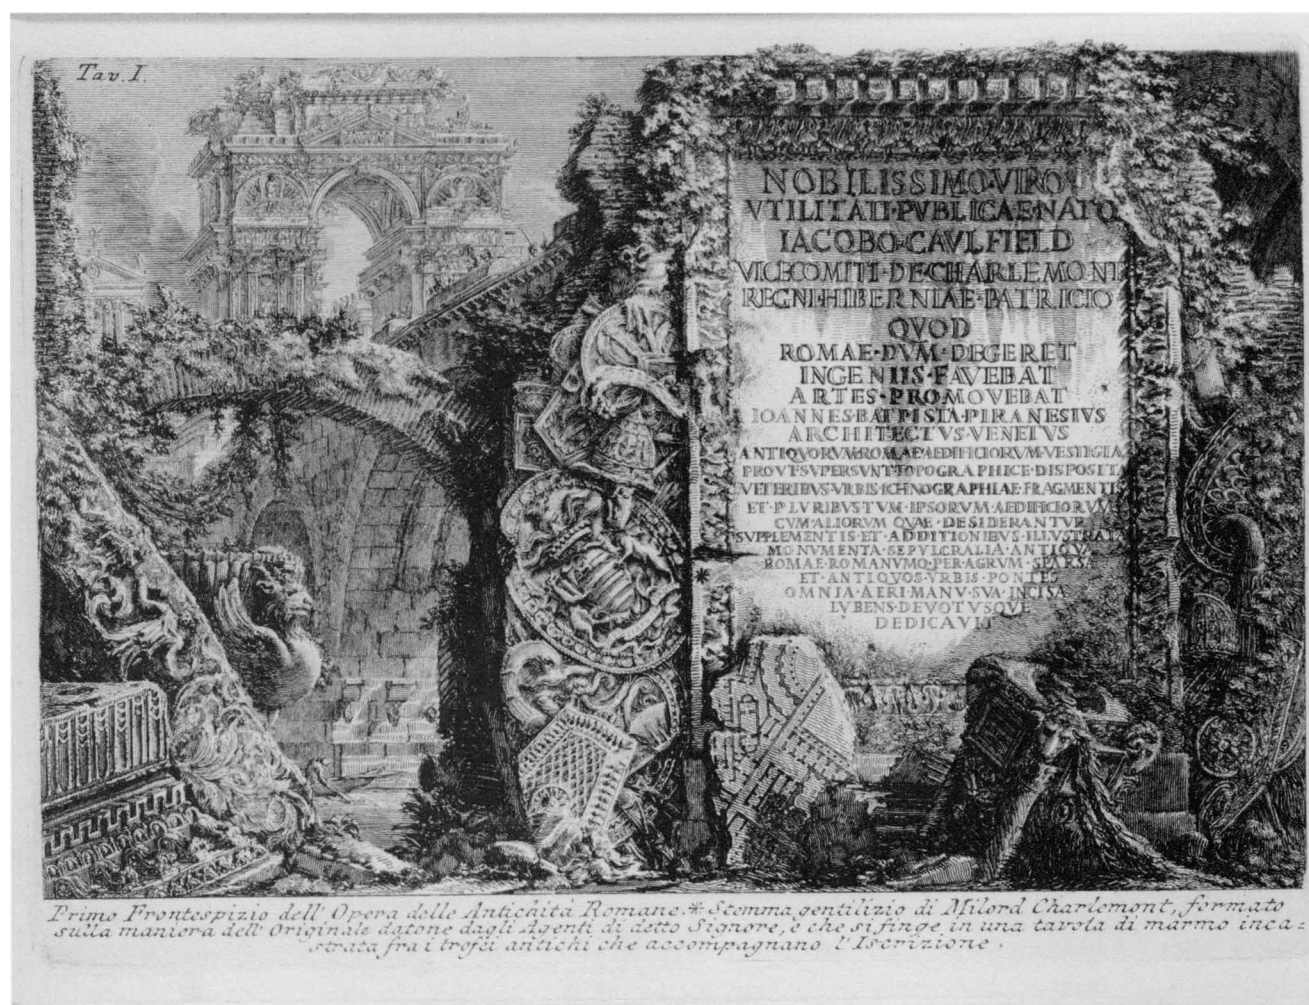 Tav. I.
NOBILISSIMO·VIRO
VTILITATI·PVBLICAE·NATO
IACOBO·CAVLFIELD
VICECOMITI·DE·CHARLEMONT
REGNI·HIBERNIAE·PATRICIO
QVOD
ROMAE·DVM·DEGERET
INGENIIS·FAVEBAT
ARTES·PROMOVEBAT
IOANNES·BAPTISTA·PIRANESIVS
ARCHITECTVS·VENETVS
ANTIQVORVM·ROMAE·AEDIFICIORVM·VESTIGIA
PROVT·SVPERSVNT·TOPOGRAPHICE·DISPOSITA
VETERIBVS·VRBIS·ICHNOGRAPHIAE·FRAGMENTIS
ET·PLVRIBVS·TVM·IPSORVM·AEDIFICIORVM
CVM·ALIORVM QVAE·DESIDERANTVR
SVPPLEMENTIS·ET·ADDITIONIBVS·ILLVSTRATA
MONVMENTA·SEPVLCRALIA·ANTIQVA
ROMAE·ROMANVMQ·PER·AGRVM·SPARSA
ET·ANTIQVOS·VRBIS·PONTES
OMNIA·AERI·MANV·SVA·INCISA
LVBENS·DEVOTVSQVE
DEDICAVIT
*
Primo Frontespizio dell' Opera delle Antichità Romane.* Stemma gentilizio di Milord Charlemont, formato
sulla maniera dell' Originale datone dagli Agenti di detto Signore, e che si finge in una tavola di marmo inca=
strata fra i trofei antichi che accompagnano l'Iscrizione.